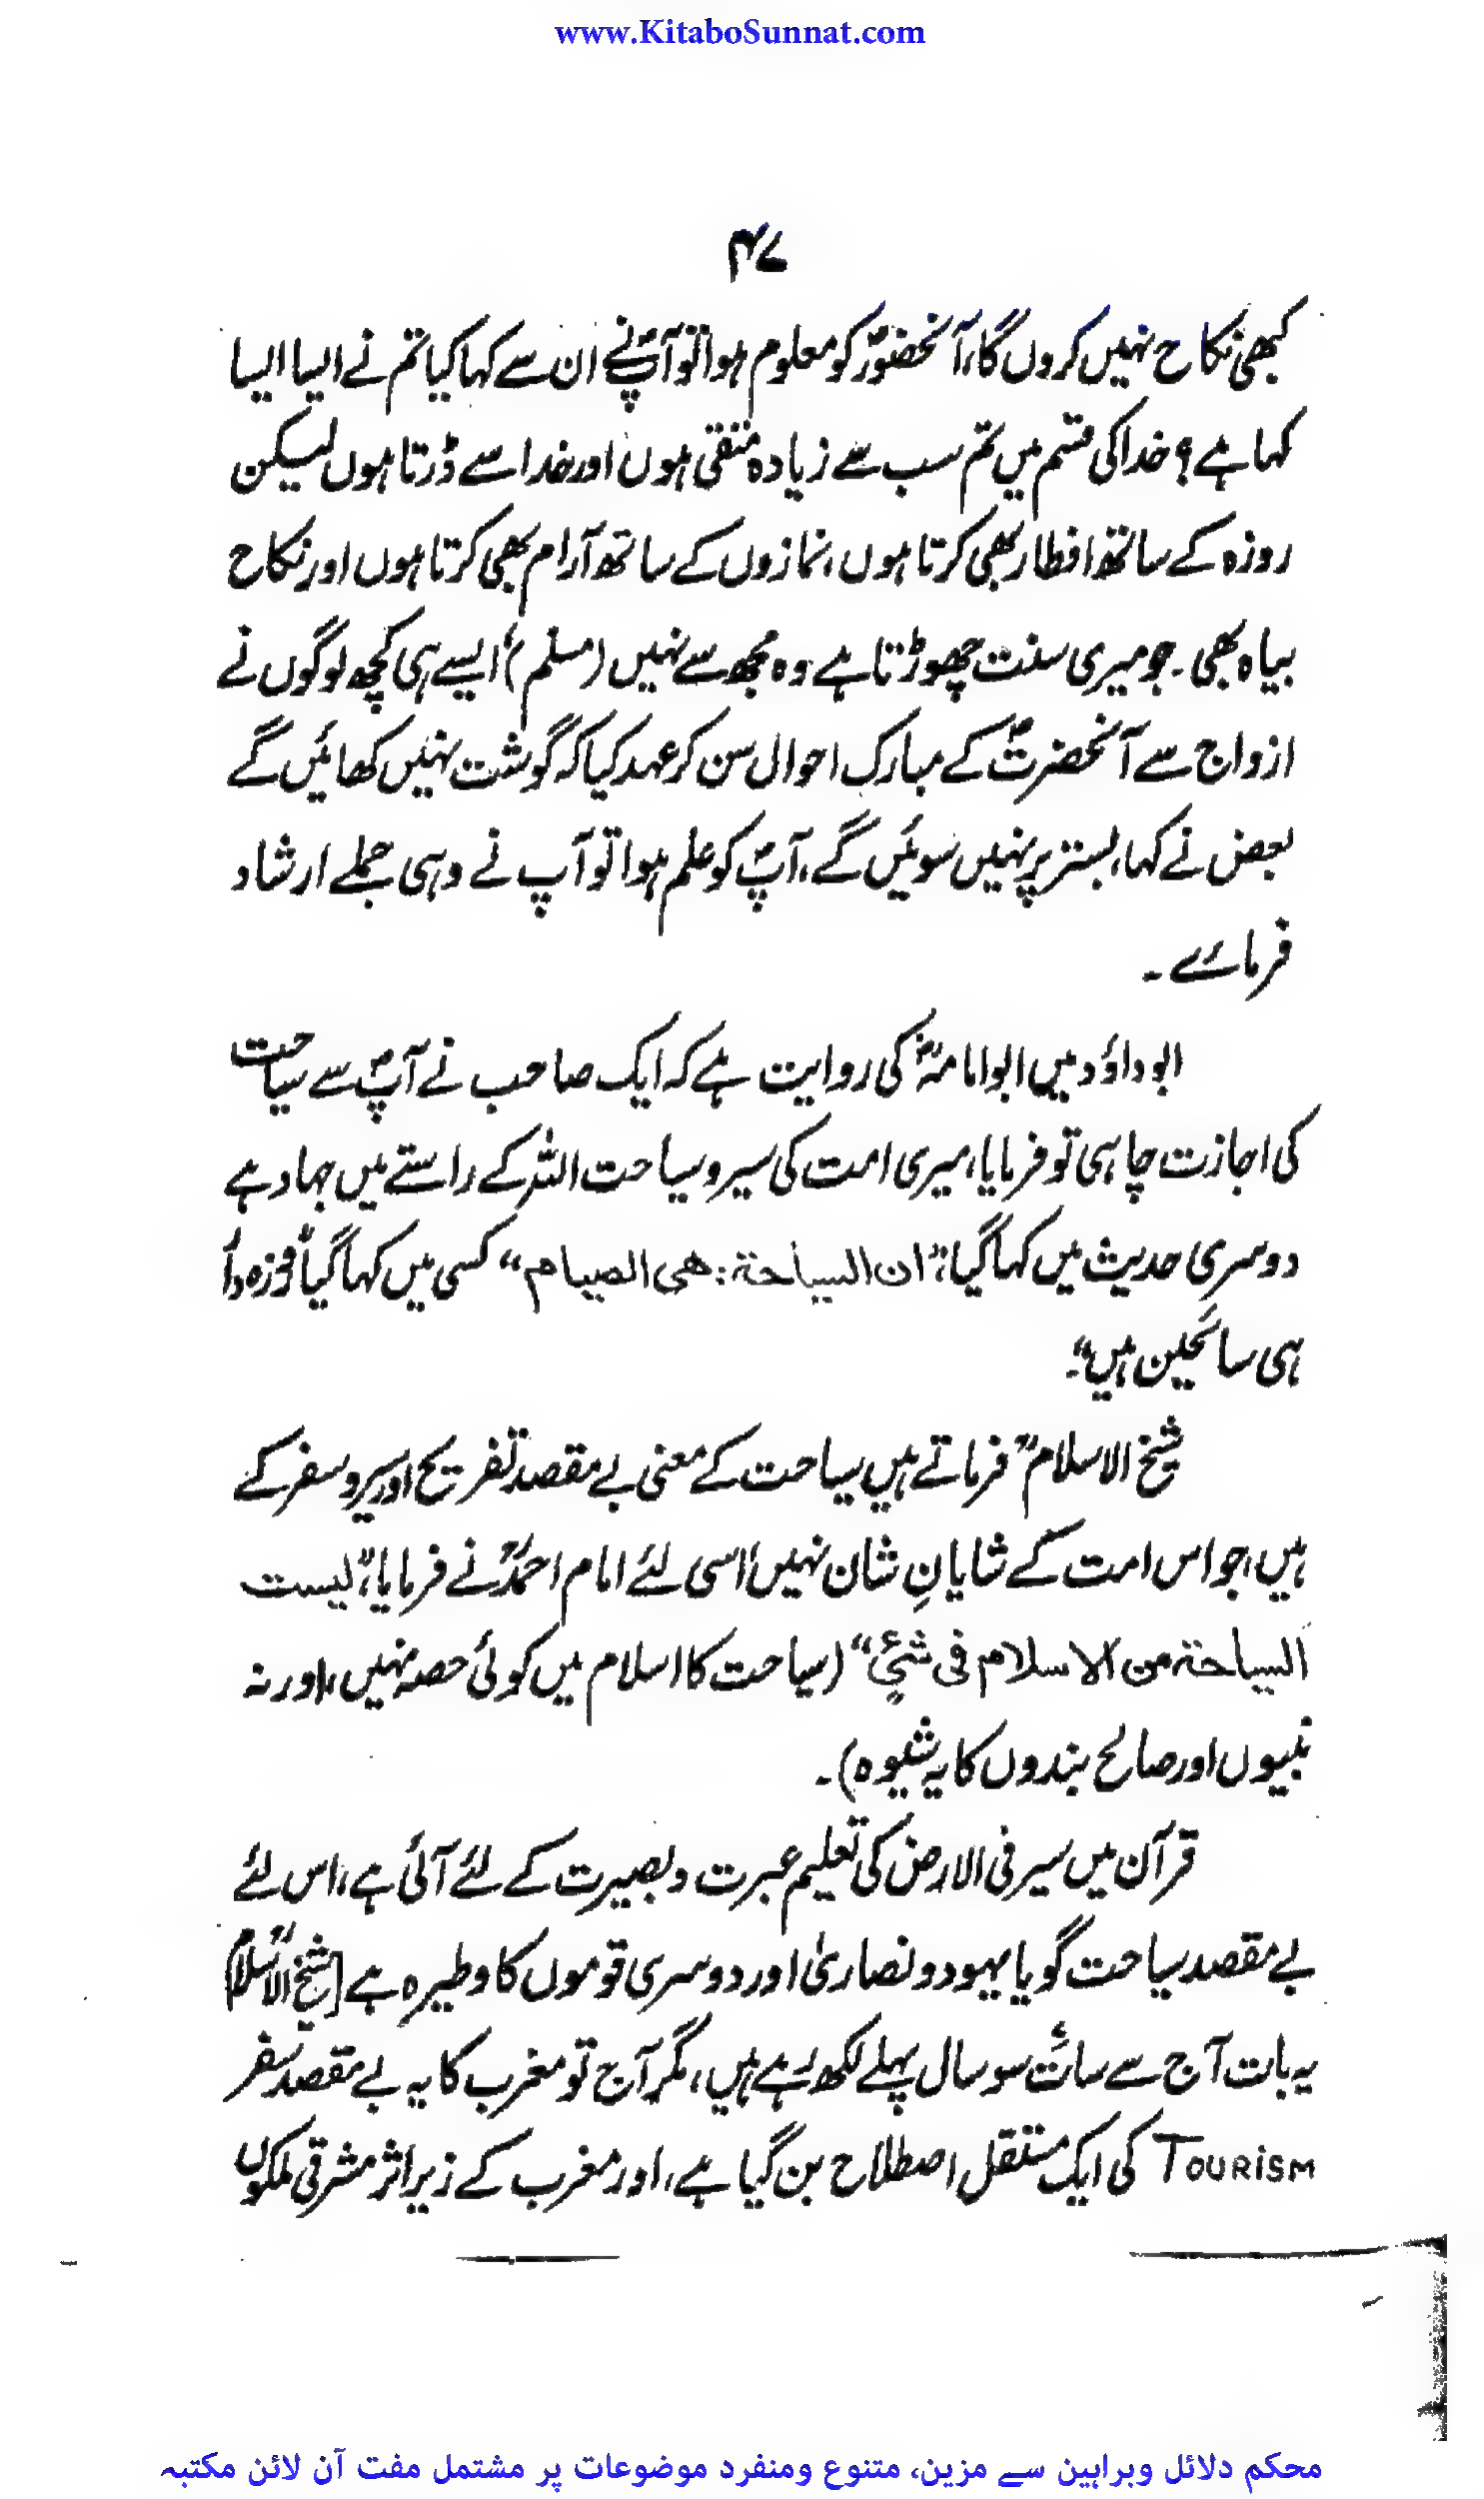 www.KitaboSunnat.com
۴۷
کبھی نکاح نہیں کروں گا، آنحضورؐ کو معلوم ہوا تو آپؐ نے ان سے کہا کیا تم نے ایسا ایسا
کہا ہے؟ خدا کی قسم میں تم سب سے زیادہ متقی ہوں اور خدا سے ڈرتا ہوں لیکن
روزہ کے ساتھ افطار بھی کرتا ہوں، نمازوں کے ساتھ آرام بھی کرتا ہوں اور نکاح
بیاہ بھی۔ جو میری سنت چھوڑتا ہے وہ مجھ سے نہیں (مسلم)، ایسے ہی کچھ لوگوں نے
ازواج سے آنحضرتؐ کے مبارک احوال سن کر عہد کیا کہ گوشت نہیں کھائیں گے
بعض نے کہا، بستر پر نہیں سوئیں گے، آپؐ کو علم ہوا تو آپ نے وہی جملے ارشاد
فرمائے۔
ابو داؤد میں ابوامامہؓ کی روایت ہے کہ ایک صاحب نے آپؐ سے سیاحت
کی اجازت چاہی تو فرمایا، میری امت کی سیر و سیاحت اللہ کے راستے میں جہاد ہے
دوسری حدیث میں کہا گیا، "ان السیاحة: هی الصیام" کسی میں کہا گیا "روزہ دار
ہی سائحین ہیں"۔
شیخ الاسلامؒ فرماتے ہیں سیاحت کے معنی بے مقصد تفریح اور سیر و سفر کے
ہیں، جو اس امت کے شایانِ شان نہیں، اسی لئے امام احمدؒ نے فرمایا، "لیست
السیاحة من الاسلام فی شیٔ" (سیاحت کا اسلام میں کوئی حصہ نہیں، اور نہ
نبیوں اور صالح بندوں کا یہ شیوہ)۔
قرآن میں سیر فی الارض کی تعلیم عبرت و بصیرت کے لئے آئی ہے، اس لئے
بے مقصد سیاحت گویا یہود و نصاریٰ اور دوسری قوموں کا وطیرہ ہے [شیخ الاسلامؒ
یہ بات آج سے سات سو سال پہلے لکھ رہے ہیں، مگر آج تو مغرب کا یہ بے مقصد سفر
TOURiSM کی ایک مستقل اصطلاح بن گیا ہے، اور مغرب کے زیر اثر مشرقی ملکوں
محکم دلائل وبراہین سے مزین، متنوع ومنفرد موضوعات پر مشتمل مفت آن لائن مکتبہ